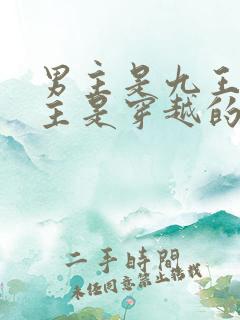 男主是九王
主是穿越的
二手時間
未经同意禁止转载